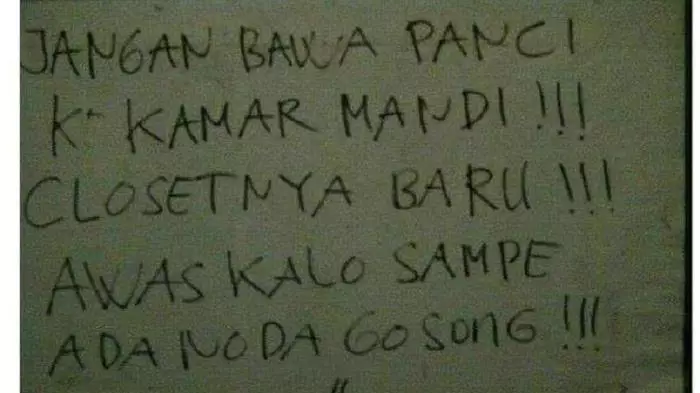 JANGAN BAWA PANCI
K- KAMAR MANDI !!!
CLOSETNYA BARU !!!
AWAS KALO SAMPE
ADA NODA GOSONG !!!